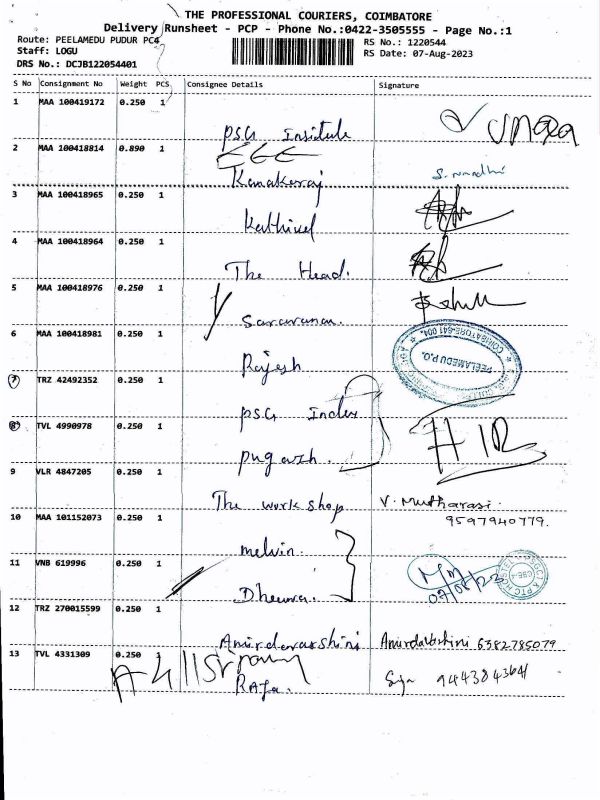 THE PROFESSIONAL COURIERS, COIMBATORE
Delivery Runsheet - PCP - Phone No.:0422-3505555 - Page No.:1
Route: PEELAMEDU PUDUR PC4
Staff: LOGU
DRS No.: DCJB122054401
RS No.: 1220544
RS Date: 07-Aug-2023
S No Consignment No Weight PCS Consignee Details Signature
1 MAA 100419172 0.250 1
PSG Institute
2 MAA 100418814 0.890 1
Kanakaraj S. Nandhi
3 MAA 100418965 0.250 1
Kathivel
4 MAA 100418964 0.250 1
The Head.
5 MAA 100418976 0.250 1
Saravanan.
6 MAA 100418981 0.250 1
Rajesh
PEELAMEDU P.O.
COIMBATORE-641 004.
7 TRZ 42492352 0.250 1
PSG Index
8 TVL 4990978 0.250 1
pugazh.
9 VLR 4847205 0.250 1
The work shop V. Mutharasi
9597940779.
10 MAA 101152073 0.250 1
melvin.
11 VNB 619996 0.250 1
07/08/23
12 TRZ 270015599 0.250 1
Amirdavarshini Amirdavarshini 6382785079
13 TVL 4331309 0.250 1
RAJA. 9443843641